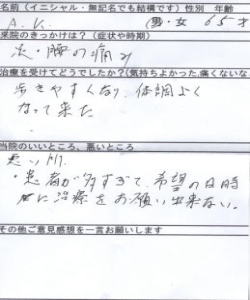 名前(イニシャル・無記名でも結構です)性別 年齢
A.K. 男・女 65才
来院のきっかけは?(症状や時期)
足・腰の痛み
治療を受けてどうでしたか?(気持ちよかった、痛くないな
歩きやすくなり、体調よく
なって来た
当院のいいところ、悪いところ
悪い所。
・患者が多すぎて、希望の日時
に治療をお願い出来ない。
その他ご意見感想を一言お願いします